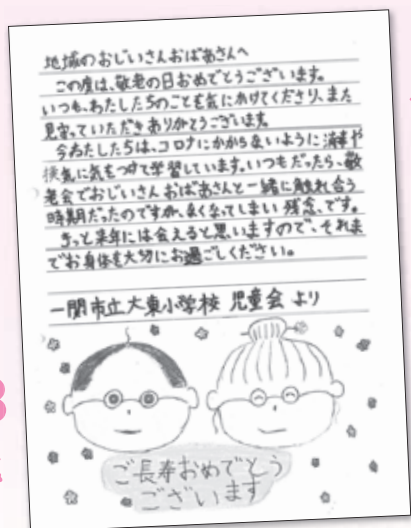 地域のおじいさんおばあさんへ
この度は、敬老の日おめでとうございます。
いつも、わたしたちのことを気にかけてくださり、また
見守っていただきありがとうございます。
今わたしたちは、コロナにかからないように消毒や
換気に気をつけて学習しています。いつもだったら、敬
老会でおじいさんおばあさんと一緒に触れ合う
時期だったのですが、なくなってしまい残念です。
きっと来年には会えると思いますので、それま
でお身体を大切にお過ごしください。
一関市立大東小学校 児童会 より
ご長寿おめでとう
ございます